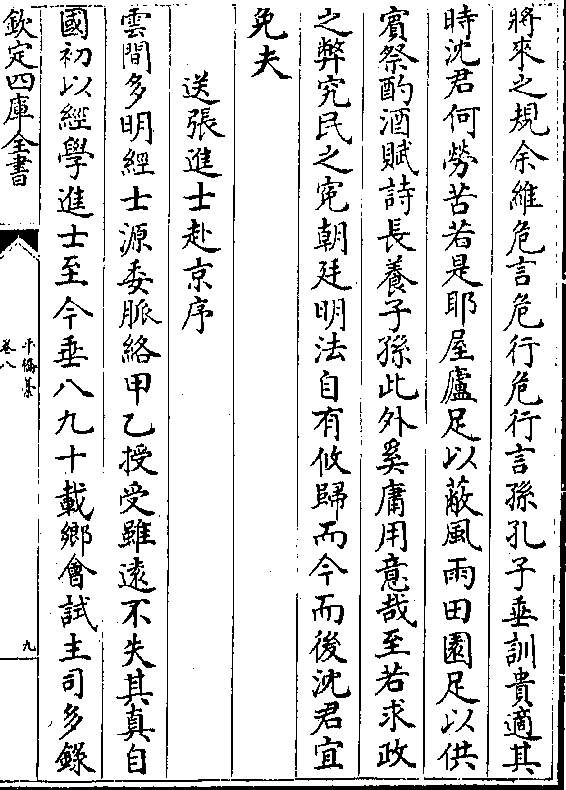 將來之規余維危言危行危行言孫孔子垂訓貴適其
時沈君何勞苦若是耶屋廬足以蔽風雨田園足以供
賓祭酌酒賦詩長養子孫此外奚庸用意哉至若求政
之弊究民之寃朝廷明法自有攸歸而今而後沈君宜
免夫
送張進士赴京序
雲間多明經士源委脈絡甲乙授受雖遠不失其真自
國初以經學進士至今垂八九十載鄉會試主司多錄
欽定四庫全書
卷八
九